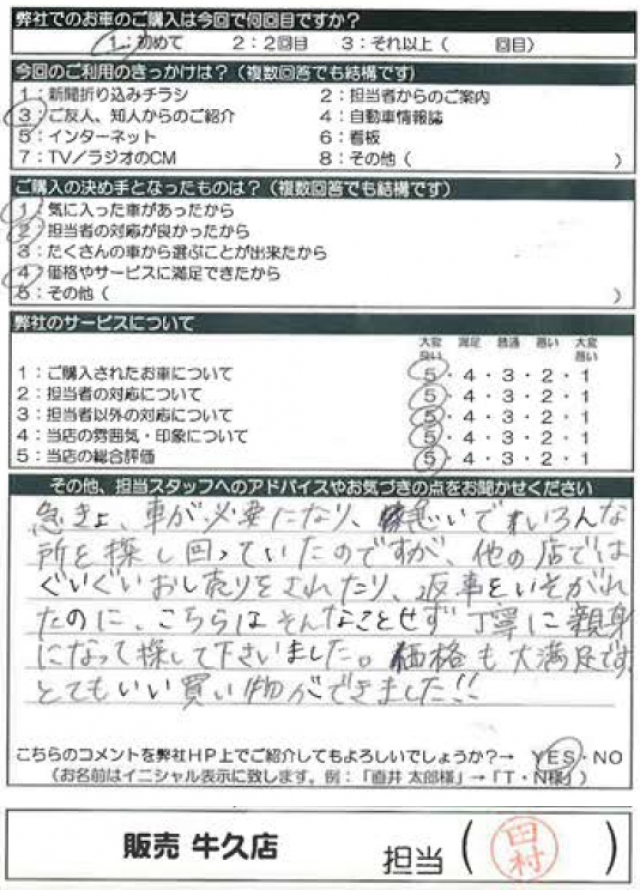 弊社でのお車のご購入は今回で何回目ですか?
1:初めて 2:2回目 3:それ以上( 回目)
今回のご利用のきっかけは?(複数回答でも結構です)
1:新聞折り込みチラシ 2:担当者からのご案内
3:ご友人、知人からのご紹介 4:自動車情報誌
5:インターネット 6:看板
7:TV/ラジオのCM 8:その他( )
ご購入の決め手となったものは?(複数回答でも結構です)
1:気に入った車があったから
2:担当者の対応が良かったから
3:たくさんの車から選ぶことが出来たから
4:価格やサービスに満足できたから
5:その他( )
弊社のサービスについて
大変良い 満足 普通 悪い 大変悪い
1:ご購入されたお車について 5・4・3・2・1
2:担当者の対応について 5・4・3・2・1
3:担当者以外の対応について 5・4・3・2・1
4:当店の雰囲気・印象について 5・4・3・2・1
5:当店の総合評価 5・4・3・2・1
その他、担当スタッフへのアドバイスやお気づきの点をお聞かせください
急きょ、車が必要になり、急いでいろんな
所を探し回っていたのですが、他の店では
ぐいぐいおし売りをされたり、返事をいそがれ
たのに、こちらはそんなことせず丁寧に親身
になって探して下さいました。価格も大満足です
とてもいい買い物ができました!!
こちらのコメントを弊社HP上でご紹介してもよろしいでしょうか?→ YES・NO
(お名前はイニシャル表示に致します。例:「直井 太郎様」→「T・N様」)
販売 牛久店 担当( 田村 )